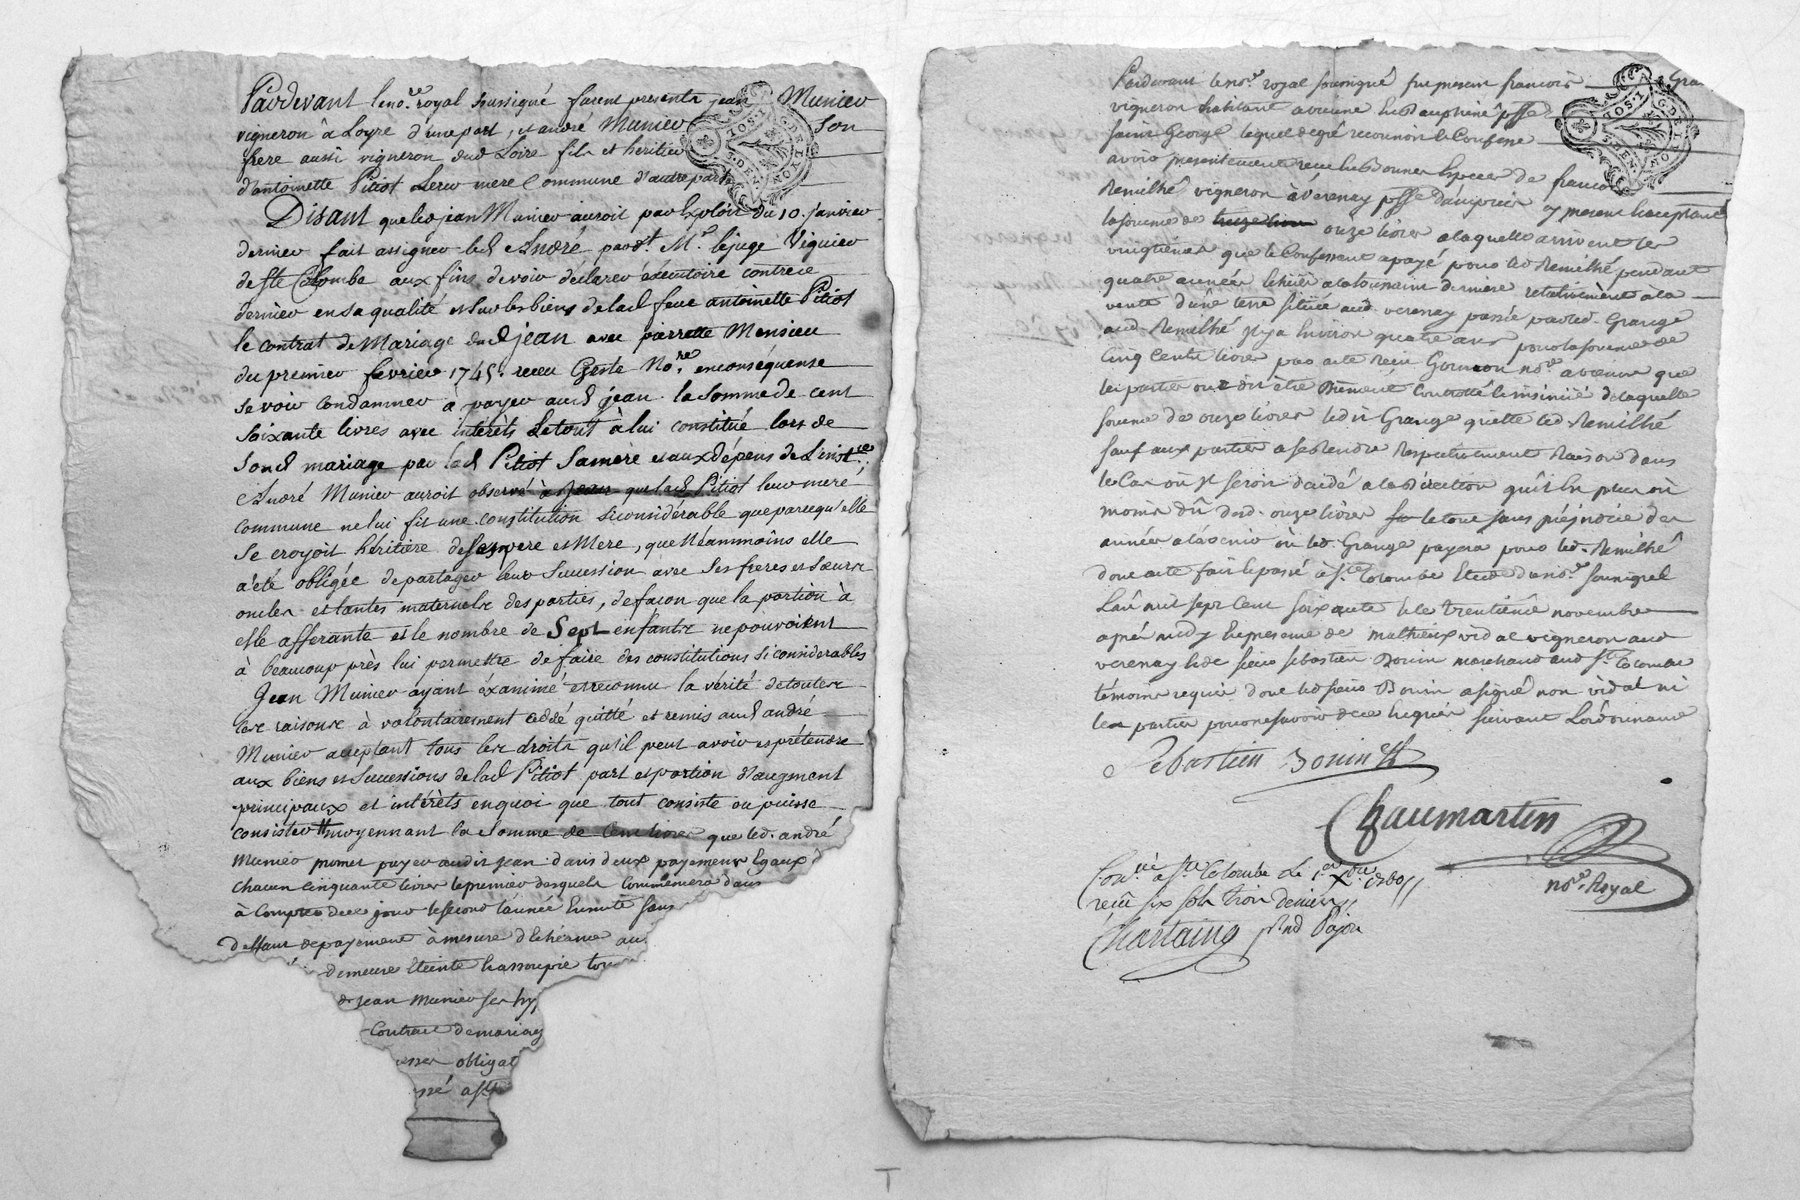 Pardevant le no.re royal soussigné furent presents jean Munier
vigneron à Loyre d'une part, et andré Munier son
frere aussi vigneron aud Loire fils et heritier
d'antoinette Pitiot Leur mere Commune d'autre part
Disant que led jean Munier auroit par Exploit du 10. janvier
dernier fait assigner led André pard.t M.r le juge Viguier
de Ste Colombe aux fins de voir declarer éxécutoire contre ce
dernier en sa qualité et sur les biens de lad feue antoinette Pitiot
le contrat de Mariage dud jean avec pierrette Monsieu
du premier fevrier 1745. receu Geste No.re en consequense
se voir condamner à payer aud jean la somme de cent
soixante livres avec intérêts Le tout à lui constitué lors de
sond mariage par lad Pitiot sa mere et aux dépens de L'inst.ce
André Munier auroit observé à Jean que lad Pitiot leur mere
commune ne lui fit une constitution si considérable que parcequ'elle
se croyoit héritière de ses pere et Mere, que Néammoins elle
a été obligée de partager leur Succession avec ses freres et sœurs
oncles et tantes maternels des parties, de façon que la portion à
elle afferante et le nombre de Sept enfants ne pouvoient
à beaucoup près lui permettre de faire des constitutions si considerables
Jean Munier ayant éxaminé et reconnu la vérité de toutes
ces raisons à volontairement cédé quitté et remis aud andré
Munier acceptant tous les droits qu'il peut avoir et prétendre
aux biens et Successions de lad Pitiot part et portion d'augment
principaux et intérèts en quoi que tout consiste ou puisse
consister moyennant la Somme de Cent livres que led. andré
Munier promet payer audit jean dans deux payemens Egaux d
Chacun Cinquante livres le premier desquels Commencera dans
à Compter de ce jour le second l'année Ensuite sans
Deffaut de payement à mesure d'Echéance au
demeure Eteinte & assoupie tou
de jean Munier ses hy
Contrat de mariag
obligat
ssé a ste
Pardevant le no.re royal soussigné fut present francois Gran
vigneron habitant a vienne En Dauphiné psse
saint George lequel de gré reconnoit & Confesse
avoir presentement reçu En Bonnes Especes de francois
Remilhé vigneron à Verenay psse d'ampuis y present & acceptant
la somme de treize livres onze livres a laquelle arrivent les
vingtiemes que le Confessant a payé pour led Remilhé pendant
quatre années Echües a la toussaint derniere relativement à la
vente d'une terre située aud. verenay passée par led. Grange
aud. Remilhé Il y a Environ quatre ans pour la somme de
Cinq Cents livres par acte Reçu no.re a vienne que
les parties ont dit être düement Controllé & insinué de laquelle
somme de onze livres led.it Grange quitte led. Remilhé
sauf aux parties a se Rendre Respectivement Raison dans
le Cas où Il seroit décidé a la direction qu'il Est plus ou
moins dû desd. onze livres le tout sans préjudice des
années a l'avenir où led. Grange payera pour led. Remilhé
dont acte fait & passé à S.te Colombe Etude du no.re soussigné
L'an mil sept cent soixante & le trentieme novembre
après midy En presence de mathieux vidal vigneron aud
verenay & de sieur sebastien Bonin marchand aud S.te Colombe
témoins requis dont led sieur Bonin a signé non vidal ni
les parties pour ne savoir de ce Enquis suivant L'ordonnance
Sebastien Bonin
Chaumartin
no.re Royal
Con.llé à S.te Colombe le 1.er X.bre 1760
reçu six sols trois deniers
Chartaing p.r md Pajot